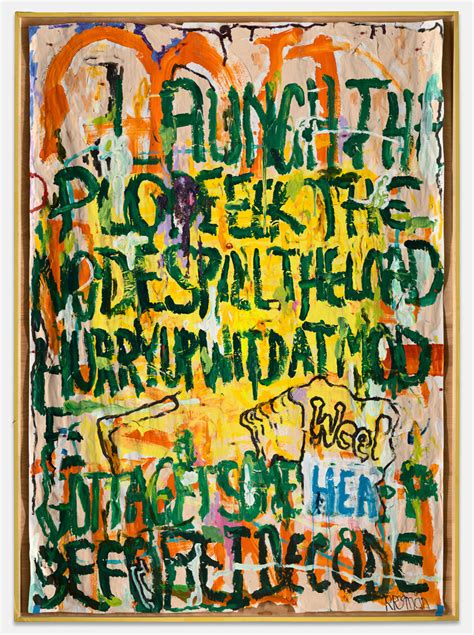 I LAUNCH TH
THE
NODE SPILL THE LOAD
HURRY UP WIT DAT MOD
E Weel
GOTTA GET SOME HEA
BEFORE I DECODE